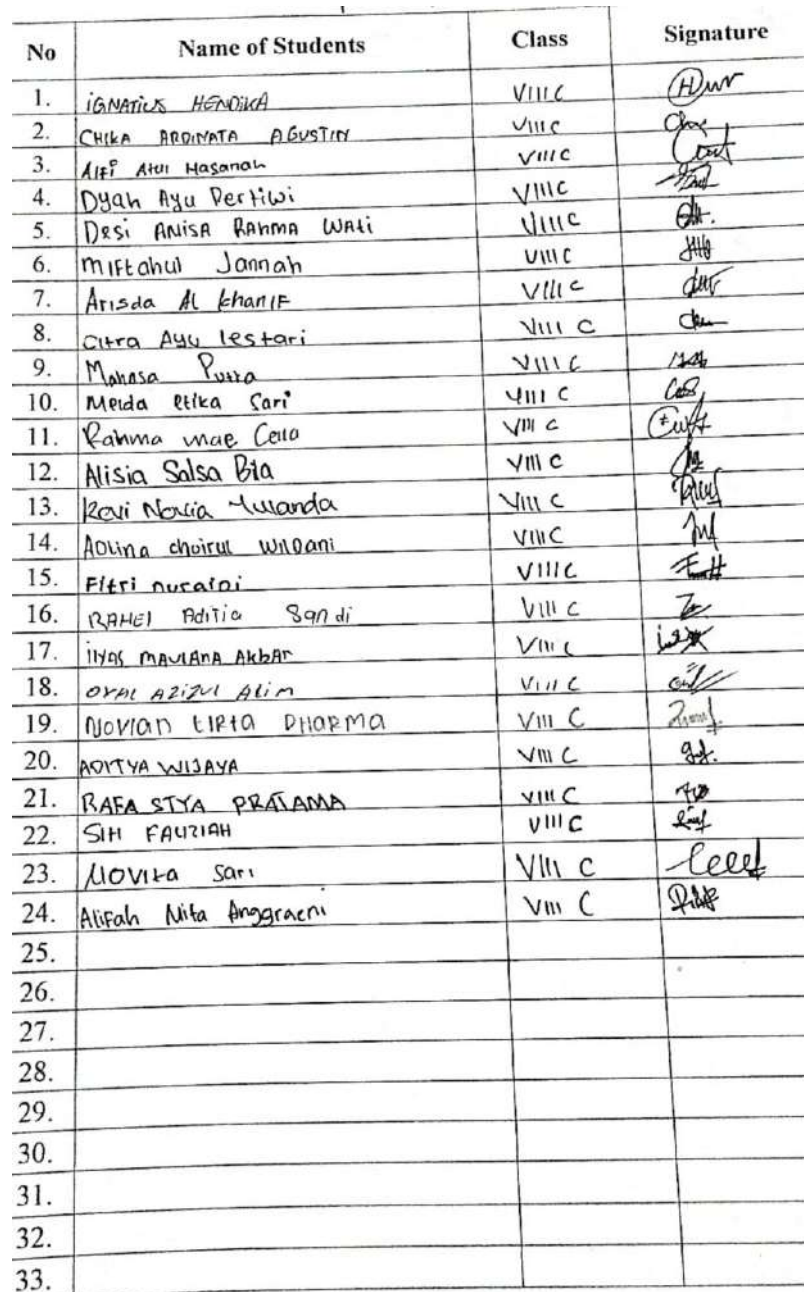 No Name of Students Class Signature
1. IGNATIUS HENDIKA VIII C
2. CHIKA ARDINATA AGUSTIN VIII C
3. Alfi Atul Hasanah VIII C
4. Dyah Ayu Pertiwi VIII C
5. Desi ANISA RAHMA WATi VIII C
6. MIFtahul Jannah VIII C
7. Arisda Al KhanIF VIII C
8. Citra Ayu lestari VIII C
9. Mahasa Putra VIII C
10. Meida etika Sari VIII C
11. Rahma mae Cella VIII C
12. Alisia Salsa Bia VIII C
13. Revi Novia Yulanda VIII C
14. ADLina choirul WILDani VIII C
15. Fitri nuraini VIII C
16. RAHEl Aditia Sandi VIII C
17. ilyas MAULANA AkbAr VIII C
18. AZIZUl AlIm VIII C
19. NOVIAN tIRta DHARMA VIII C
20. ADITYA WIJAYA VIII C
21. RAFA STYA PRATAMA VIII C
22. SITI FAUZIAH VIII C
23. NOVIta Sari VIII C
24. Alifah Nita Anggraeni VIII C
25.
26.
27.
28.
29.
30.
31.
32.
33.